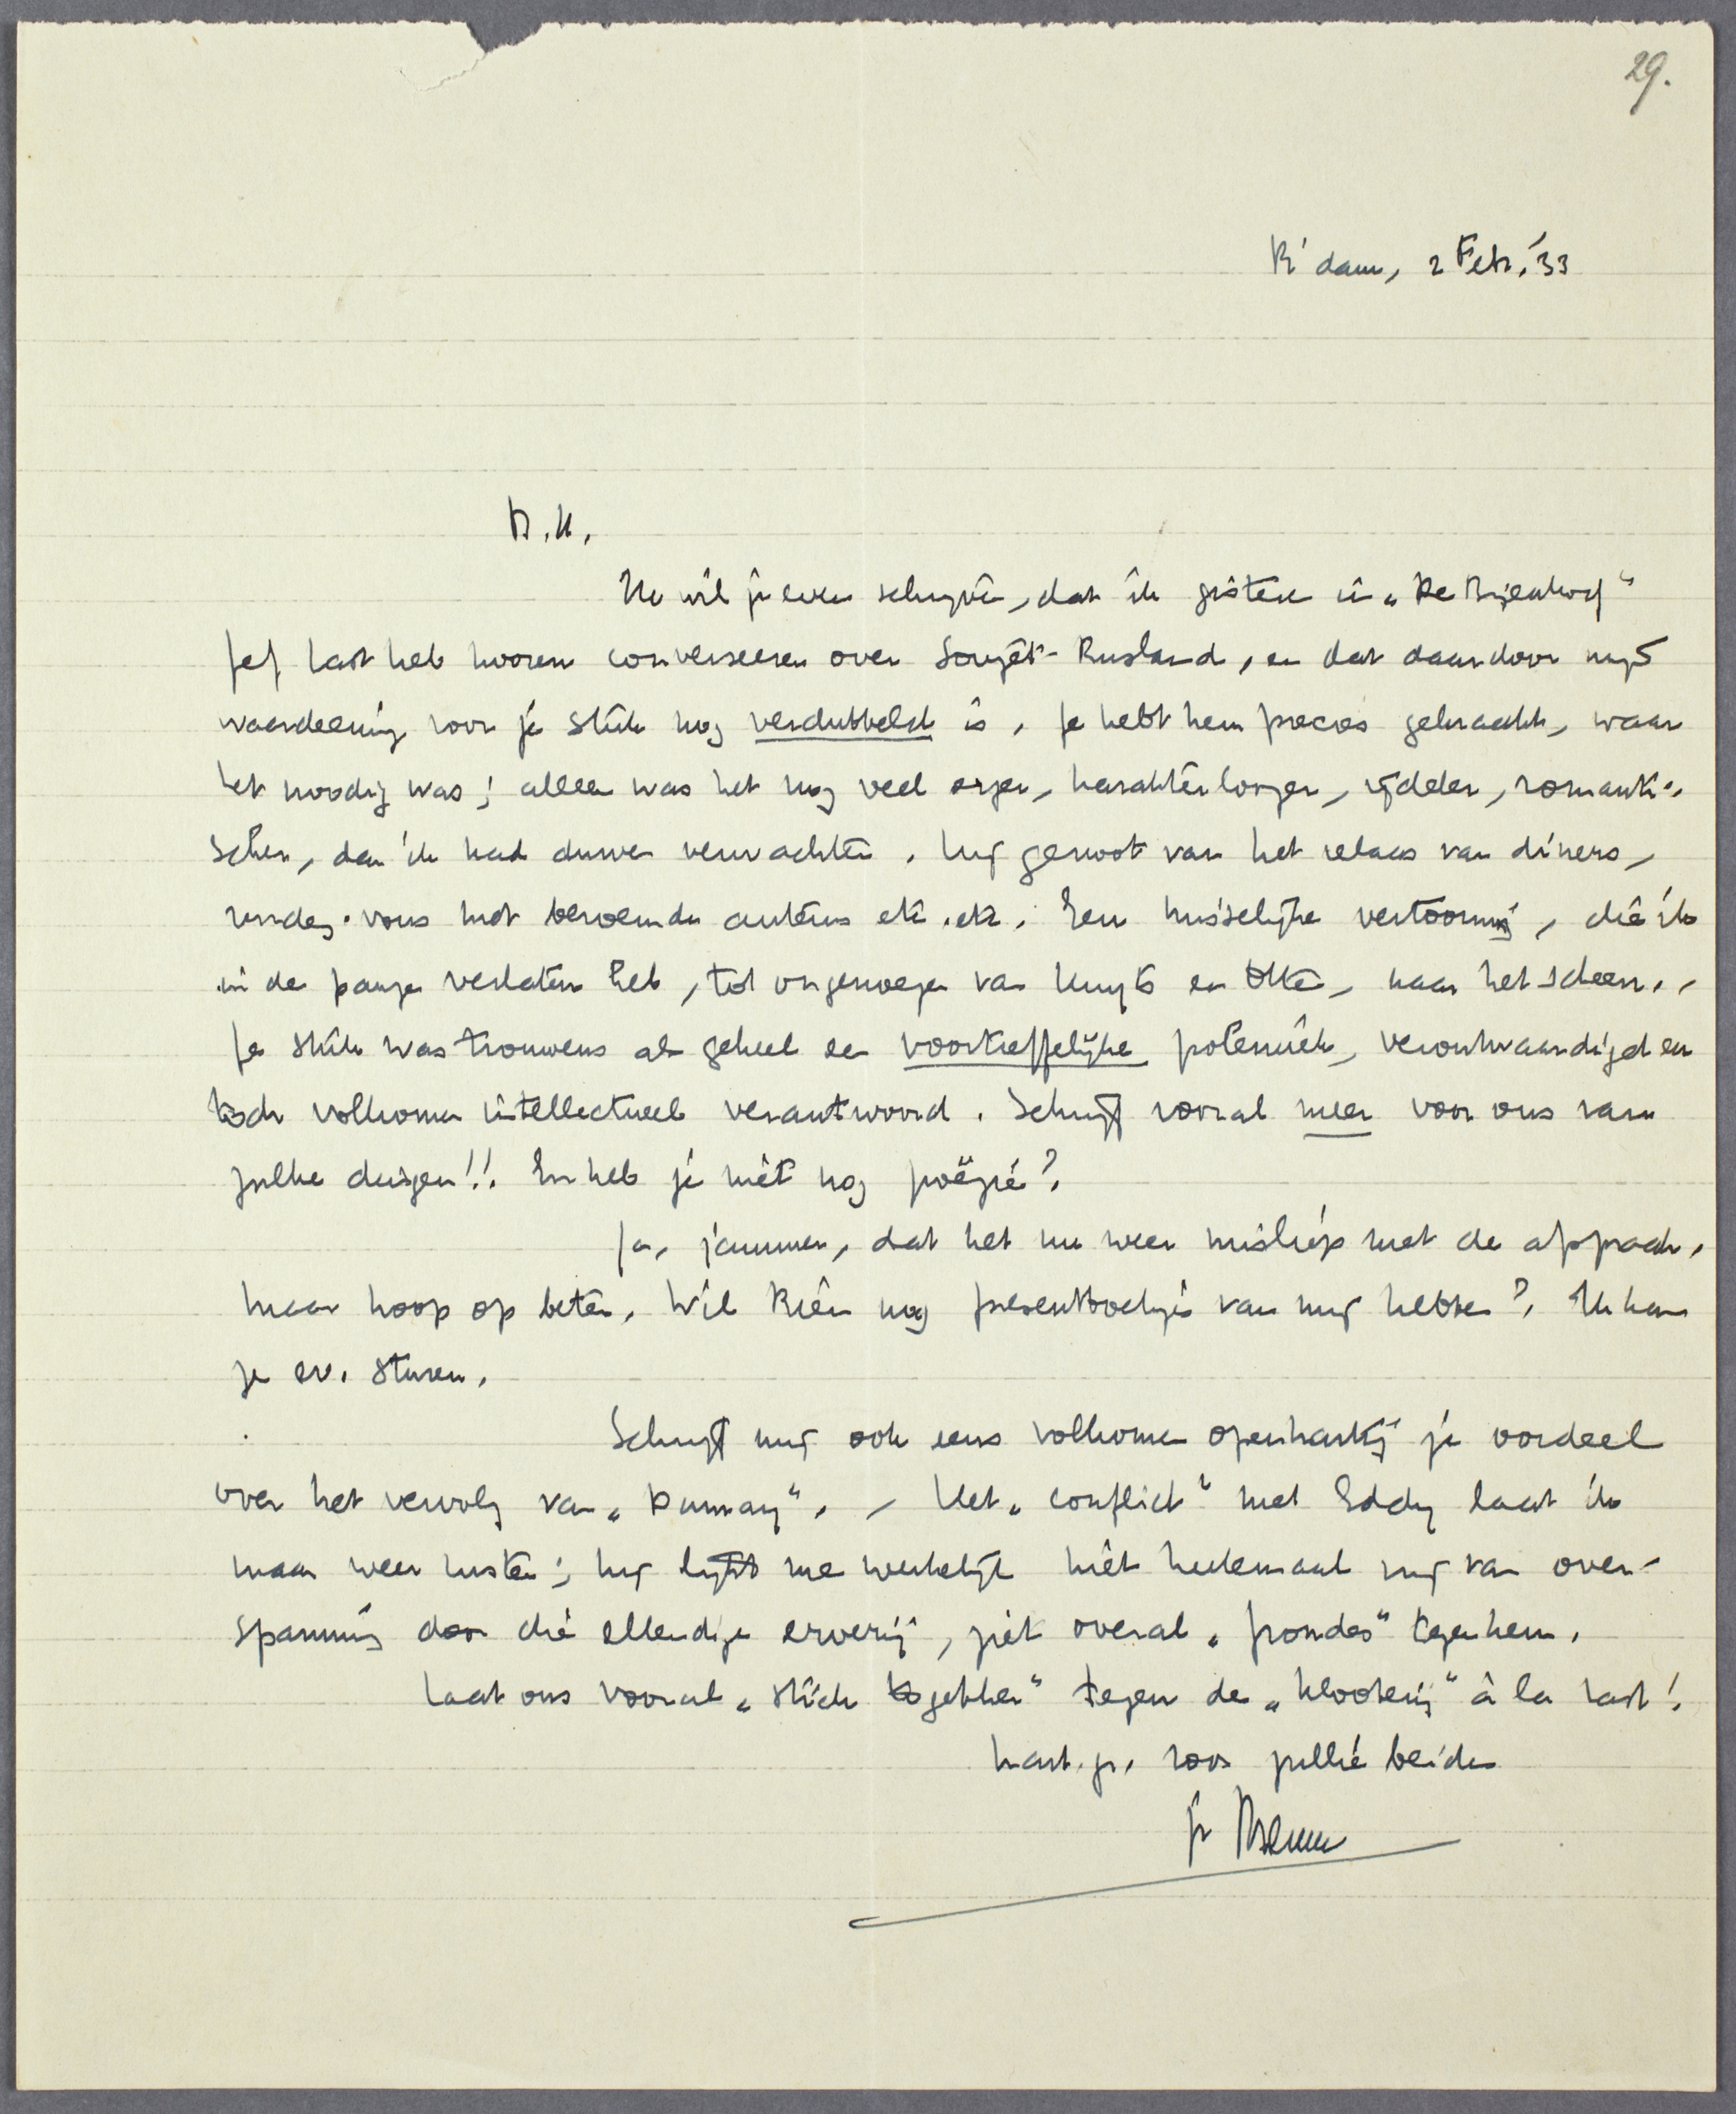 29.
R'dam, 2 Febr. '33
B.H.
Ik wil je even schrijven, dat ik gisteren in „De Bijenkorf"
Jef Last heb hooren converseeren over Sovjet-Rusland, en dat daardoor mijn
waardeering voor je stuk nog verdubbeld is. Je hebt hem precies gekraakt, waar
het noodig was; alleen was het nog veel erger, karakterloozer, ijdeler, romanti-
scher, dan ik had durven verwachten. Hij genoot van het relaas van diners,
rendez-vous met beroemde auteurs etc. etc. Een misselijke vertooning, die ik
in de pauze verlaten heb, tot ongenoegen van Kuyle en Otten, naar het scheen.
Je stuk was trouwens als geheel een voortreffelijke polemiek, verontwaardigd en
toch volkomen intellectueel verantwoord. Schrijf vooral meer voor ons van
zulke dingen!! En heb je niet nog poëzie?
Ja, jammer, dat het nu weer misliep met de afspraak,
maar hoop op beter. Wil Rien nog presentboekjes van mij hebben? Ik kan
ze ev. sturen.
Schrijf mij ook eens volkomen openhartig je oordeel
over het vervolg van „Dumay". – Het „conflict" met Eddy laat ik
maar weer rusten; hij lijkt me werkelijk niet heelemaal vrij van over-
spanning door die ellendige erverij, ziet overal „frondes" tegen hem.
Laat ons vooral „stick together" tegen de „klooterij" à la Last!
hart. gr. voor jullie beiden
je Menno